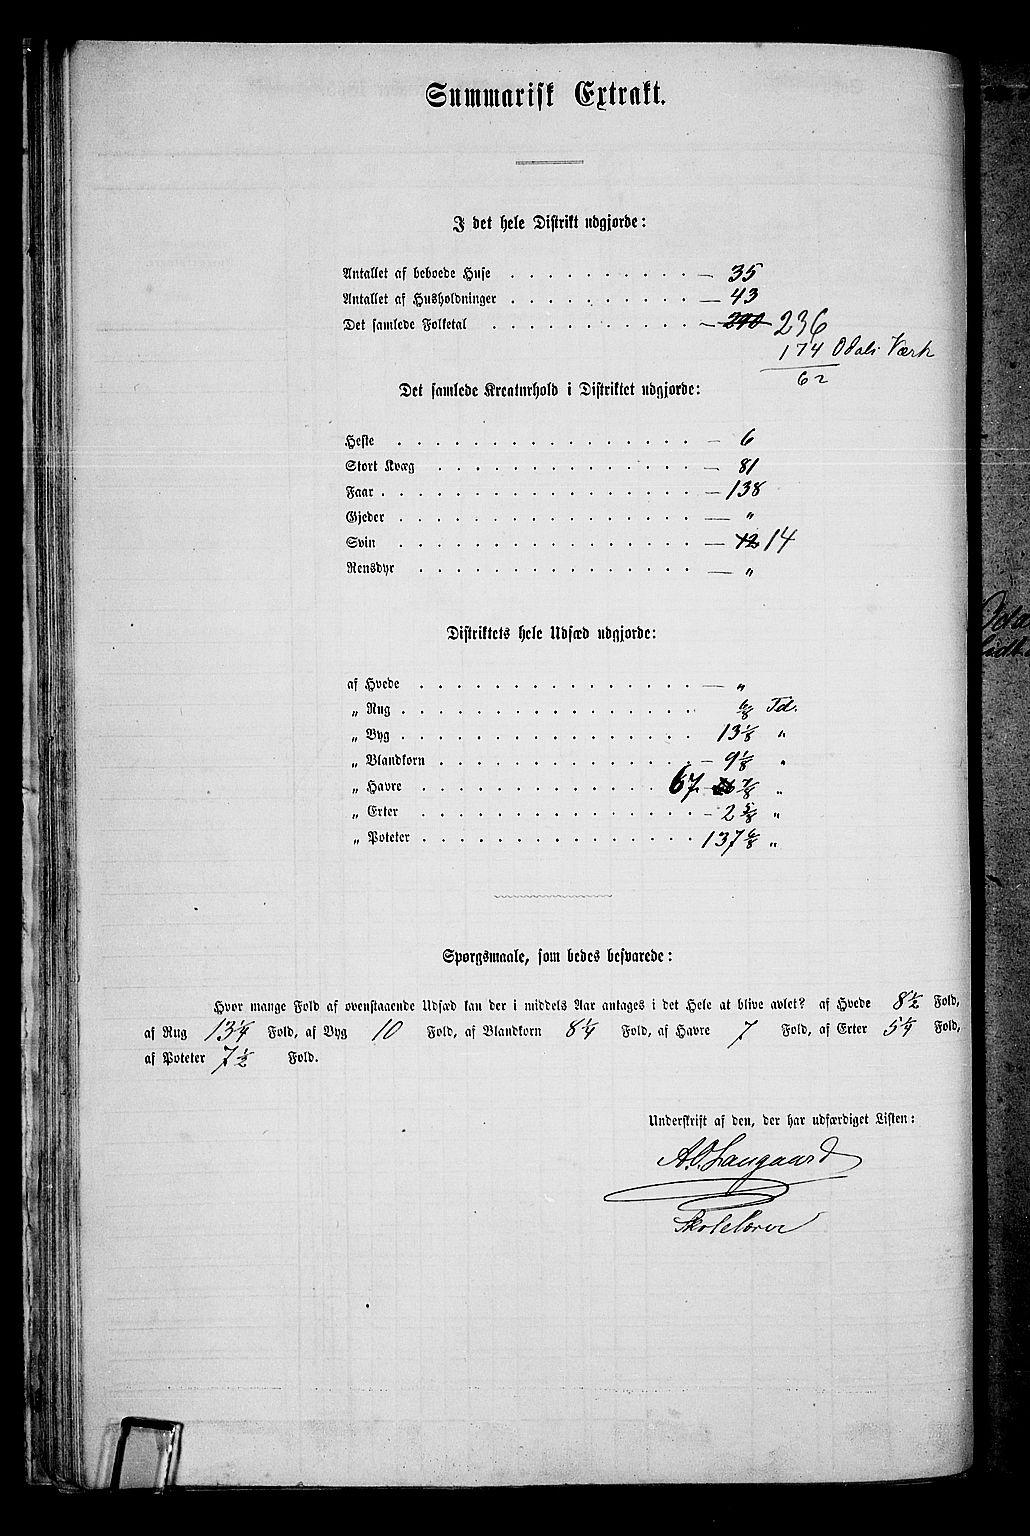 Summarisk Extrakt.
I det hele Distrikt udgjorde:
Antallet af beboede Huse . . . . . . . . — 35
Antallet af Husholdninger . . . . . . . . — 43
Det samlede Folketal . . . . . . . . . — 236
174 Odals Værk
62
Det samlede Kreaturhold i Distriktet udgjorde:
Heste . . . . . . . . . . . . — 6
Stort Kvæg . . . . . . . . . . . — 81
Faar . . . . . . . . . . . . . — 138
Gjeder . . . . . . . . . . . . — „
Svin . . . . . . . . . . . . — 12 14
Rensdyr . . . . . . . . . . . — „
Distriktets hele Udsæd udgjorde:
af Hvede . . . . . . . . . . . — „
„ Rug . . . . . . . . . . . . 6/8 Td.
„ Byg . . . . . . . . . . . . 13 1/8 „
„ Blandkorn . . . . . . . . . . — 9 1/8 „
„ Havre . . . . . . . . . . 67 7/8 „
„ Erter . . . . . . . . . . . — 2 3/8 „
„ Poteter . . . . . . . . . . . 137 6/8 „
Spørgsmaale, som bedes besvarede:
Hvor mange Fold af ovenstaaende Udsæd kan der i middels Aar antages i det Hele at blive avlet? af Hvede 8 1/2 Fold,
af Rug 13 1/4 Fold, af Byg 10 Fold, af Blandkorn 8 1/4 Fold, af Havre 7 Fold, af Erter 5 1/4 Fold,
af Poteter 7 1/2 Fold.
Underskrift af den, der har udfærdiget Listen:
A. O. Langaard
Skolelærer